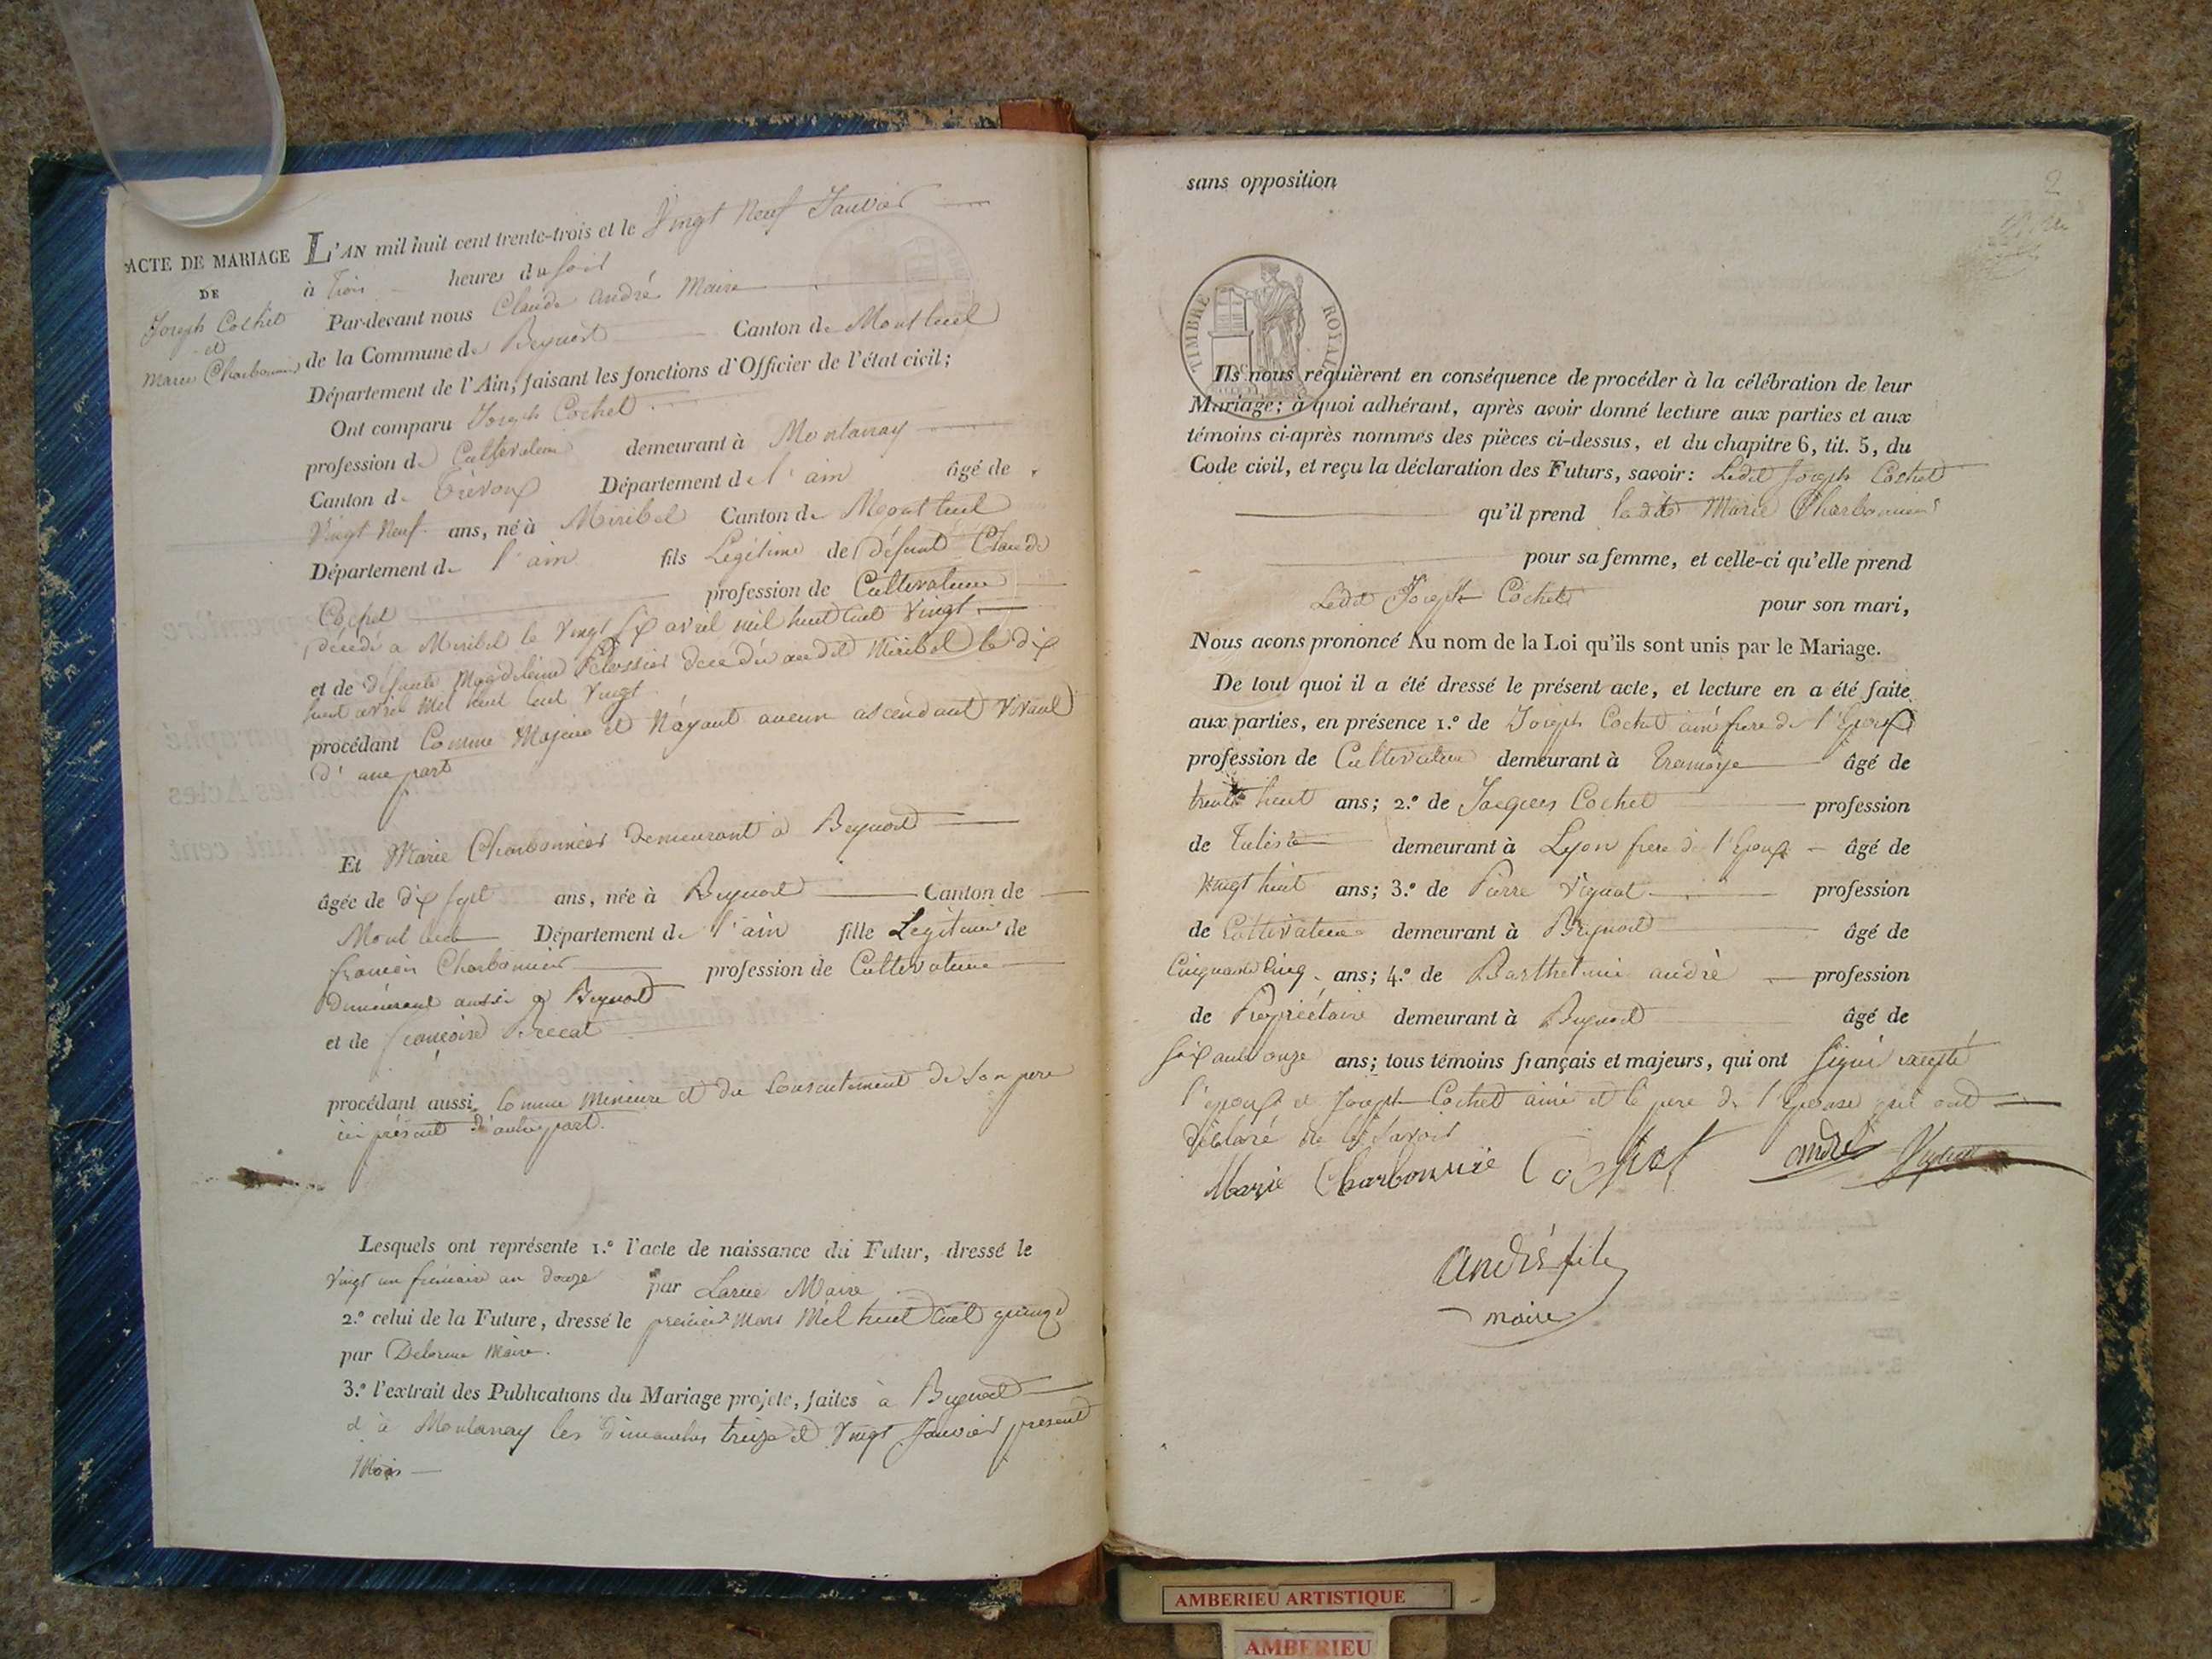 ACTE DE MARIAGE
DE
Joseph Cochet
et
Marie Charbonnier
L'AN mil huit cent trente-trois et le Vingt Neuf Janvier
à trois heures du soir
Par-devant nous Claude André Maire
de la Commune de Beynost Canton de Montluel
Département de l'Ain, faisant les fonctions d'Officier de l'état civil;
Ont comparu Joseph Cochet
profession de Cultivateur demeurant à Montanay
Canton de Trévoux Département de l'ain âgé de
Vingt Neuf ans, né à Miribel Canton de Montluel
Département de l'ain fils Légitime de défunt Claude
Cochet profession de Cultivateur
décédé a Miribel le vingt six avril mil huit cent vingt
et de défunte Magdeleine Pelossier décédée audit Miribel le dix
huit avril mil huit cent vingt
procédant Comme Majeur et N'ayant aucun ascendant Vivant
d'une part
Et Marie Charbonnier demeurant à Beynost
âgée de dix sept ans, née à Beynost Canton de
Montluel Département de l'ain fille Légitime de
françois Charbonnier profession de Cultivateur
demeurant aussi a Beynost
et de françoise
procédant aussi Comme Mineure et du Consentement de son pere
ici présent d'autre part.
Lesquels ont représente 1.º l'acte de naissance du Futur, dressé le
vingt un frimaire an douze par Larue Maire
2.º celui de la Future, dressé le premier Mars Mil huit Cent quinze
par Delorme Maire.
3.º l'extrait des Publications du Mariage projeté, faites à Beynost
et à Montanay les dimanches treize et Vingt Janvier present
Mois
2
sans opposition
TIMBRE ROYAL
Ils nous requièrent en conséquence de procéder à la célébration de leur
Mariage; à quoi adhérant, après avoir donné lecture aux parties et aux
témoins ci-après nommés des pièces ci-dessus, et du chapitre 6, tit. 5, du
Code civil, et reçu la déclaration des Futurs, savoir: Ledit Joseph Cochet
qu'il prend ladite Marie Charbonnier
pour sa femme, et celle-ci qu'elle prend
Ledit Joseph Cochet pour son mari,
Nous avons prononcé Au nom de la Loi qu'ils sont unis par le Mariage.
De tout quoi il a été dressé le présent acte, et lecture en a été faite
aux parties, en présence 1.º de Joseph Cochet ainé frere de l'Epoux
profession de Cultivateur demeurant à Tramoye âgé de
trente huit ans; 2.º de Jacques Cochet profession
de Tuliste demeurant à Lyon frere de l'Epoux âgé de
Vingt huit ans; 3.º de Pierre Vignat profession
de Cultivateur demeurant à Beynost âgé de
Cinquante Cinq ans; 4.º de Barthelemi andré profession
de Propriétaire demeurant à Beynost âgé de
soixante onze ans; tous témoins français et majeurs, qui ont signé excepté
l'epoux et Joseph Cochet ainé et le pere de l'Epouse qui ont
déclaré ne le savoir
Marie Charbonnié Cochet andré Vignat
André fils
maire
AMBERIEU ARTISTIQUE
AMBERIEU